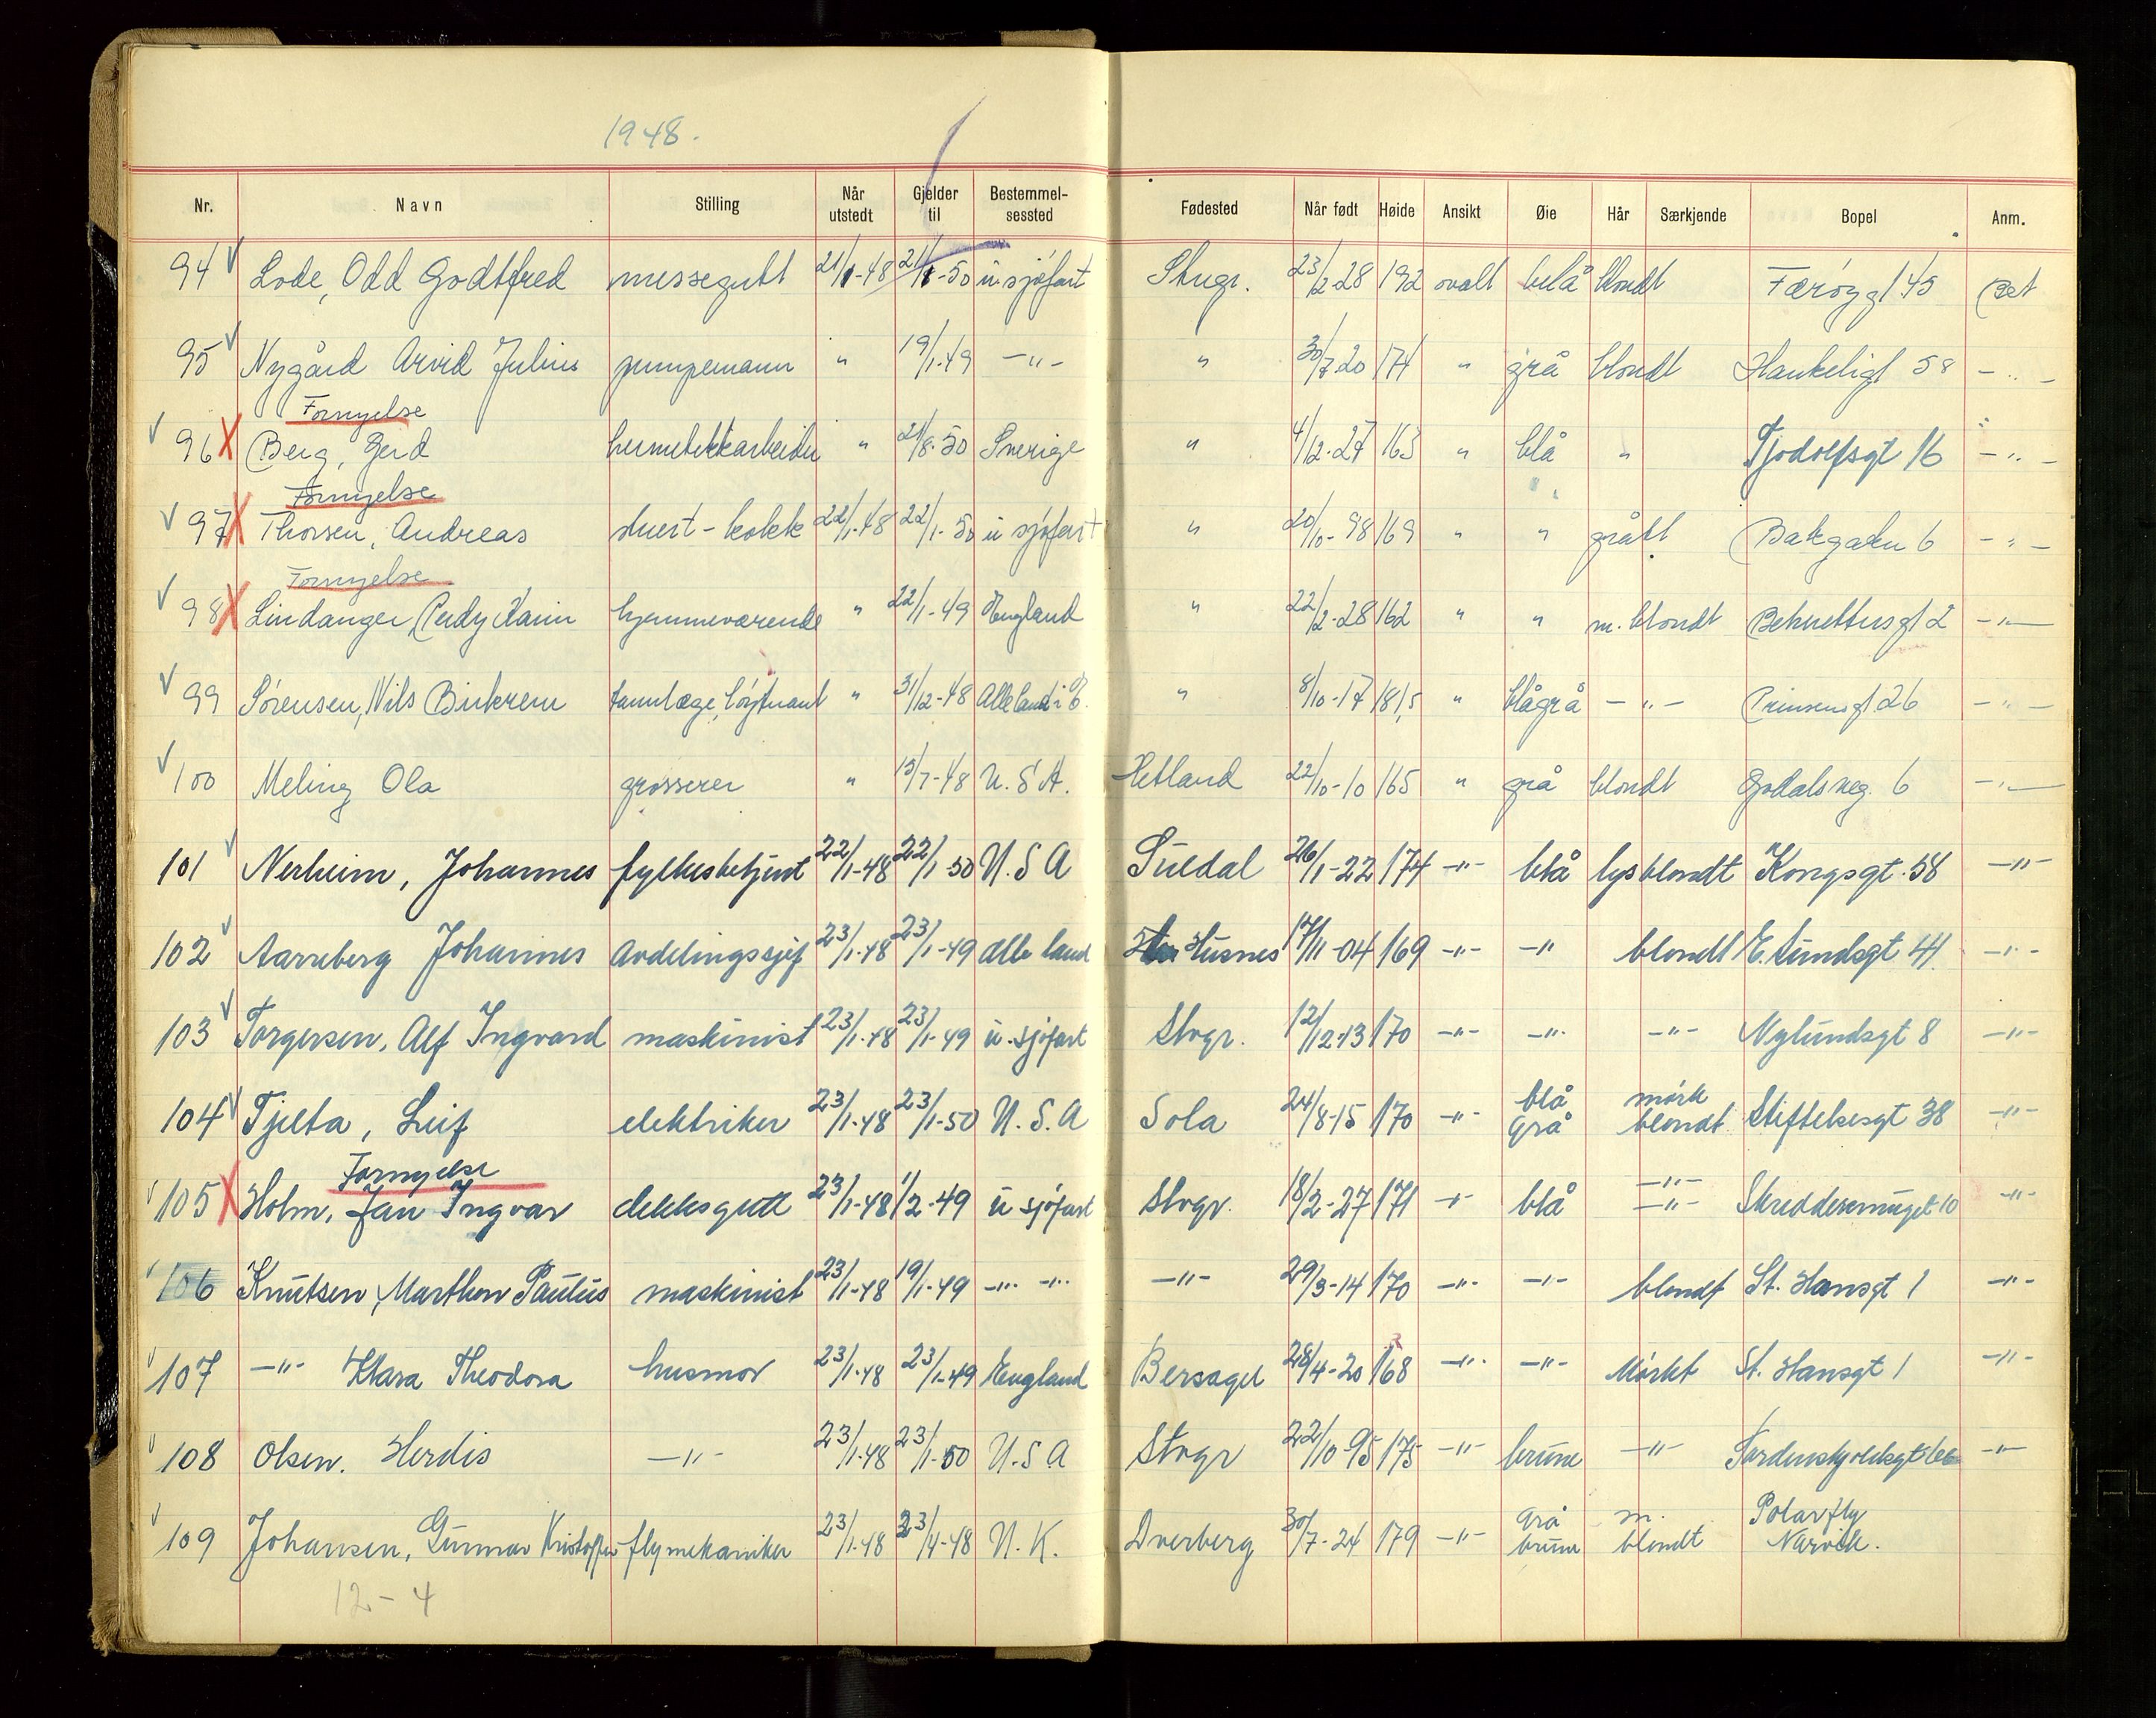 1948.
Nr. Navn Stilling Når utstedt Gjelder til Bestemmel-sessted Fødested Når født Høide Ansikt Øie Hår Særkjende Bopel Anm.
94 Lode, Odd Godtfred messegutt 21/1-48 21/1-50 u. sjøfart Stvgr. 23/2-28 192 ovalt belå blondt Færøygt 45 Bet
95 Nygård Arvid Julius pumpemann " 19/1-49 -"- " 30/7-20 174 " grå blondt Haukeligt 58 -"-
Fornyelse
96 X Berg, Gerd hermetikkarbeider " 21/8-50 Sverige " 4/12-27 163 " blå " Tjodolfsgt 16 -"-
Fornyelse
97 X Thorsen, Andreas stuert-kokk 22/1-48 22/1-50 u sjøfart " 20/10-98 169 " " grått Bakgaten 6 -"-
Fornyelse
98 X Lindanger, Karin hjemmeværende " 22/1-49 England " 22/2-28 162 " " m. blondt 2 -"-
99 Sørensen, Nils Birkrem tannlæge, løytnant " 31/12-48 Alle land i E. " 8/10-17 181,5 " blågrå -"- Prinsensgt 26 -"-
100 Meling Ola grosserer " 15/7-48 U.S.A. Hetland 22/10-10 165 " grå blondt Godalsveg. 6 -"-
101 Nerheim, Johannes fylkesbetjent 22/1-48 22/1-50 U.S.A Suldal 26/1-22 174 -"- blå lysblondt Kongsgt. 58 -"-
102 Aarreberg Johannes Avdelingssjef 23/1-48 23/1-49 alle land Husnes 17/11-04 169 -"- -"- blondt E. Sundsgt 41 -"-
103 Torgersen, Alf Ingvard maskinist 23/1-48 23/1-49 u. sjøfart Stvgr. 12/12-13 170 -"- -"- -"- Nylundsgt 8 -"-
104 Tjelta, Leif elektriker 23/1-48 23/1-50 U.S.A Sola 24/8-15 170 -"- blå grå mørk blondt Stiftelsesgt 38 -"-
Fornyelse
105 X Holm, Jan Ingvar dekksgutt 23/1-48 1/2-49 u sjøfart Stvgr. 18/2-27 171 -"- blå -"- -"- Skreddersmuget 10 -"-
106 Knutsen, Marthon Paulus maskinist 23/1-48 19/1-49 -"- -"- -"- 29/3-14 170 -"- -"- blondt St. Hansgt 1 -"-
107 -"- Klara Theodora husmor 23/1-48 23/1-49 England Bersagel 28/4-20 168 -"- -"- Mørkt St. Hansgt 1 -"-
108 Olsen. Herdis -"- 23/1-48 23/1-50 U.S.A Stvgr 22/10-95 175 -"- brune -"- -"-
109 Johansen, Gunnar Kristoffer flymekaniker 23/1-48 23/4-48 U.K. Dverberg 30/7-24 179 -"- grå brune m. blondt Polarfly Narvik.
12-4